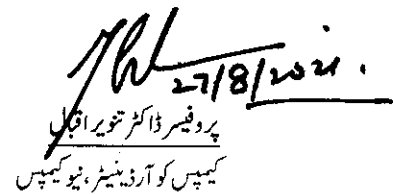 27/8/2021.
پروفیسر ڈاکٹر تنویر اقبال
کیمپس کوآرڈینیٹر، نیو کیمپس